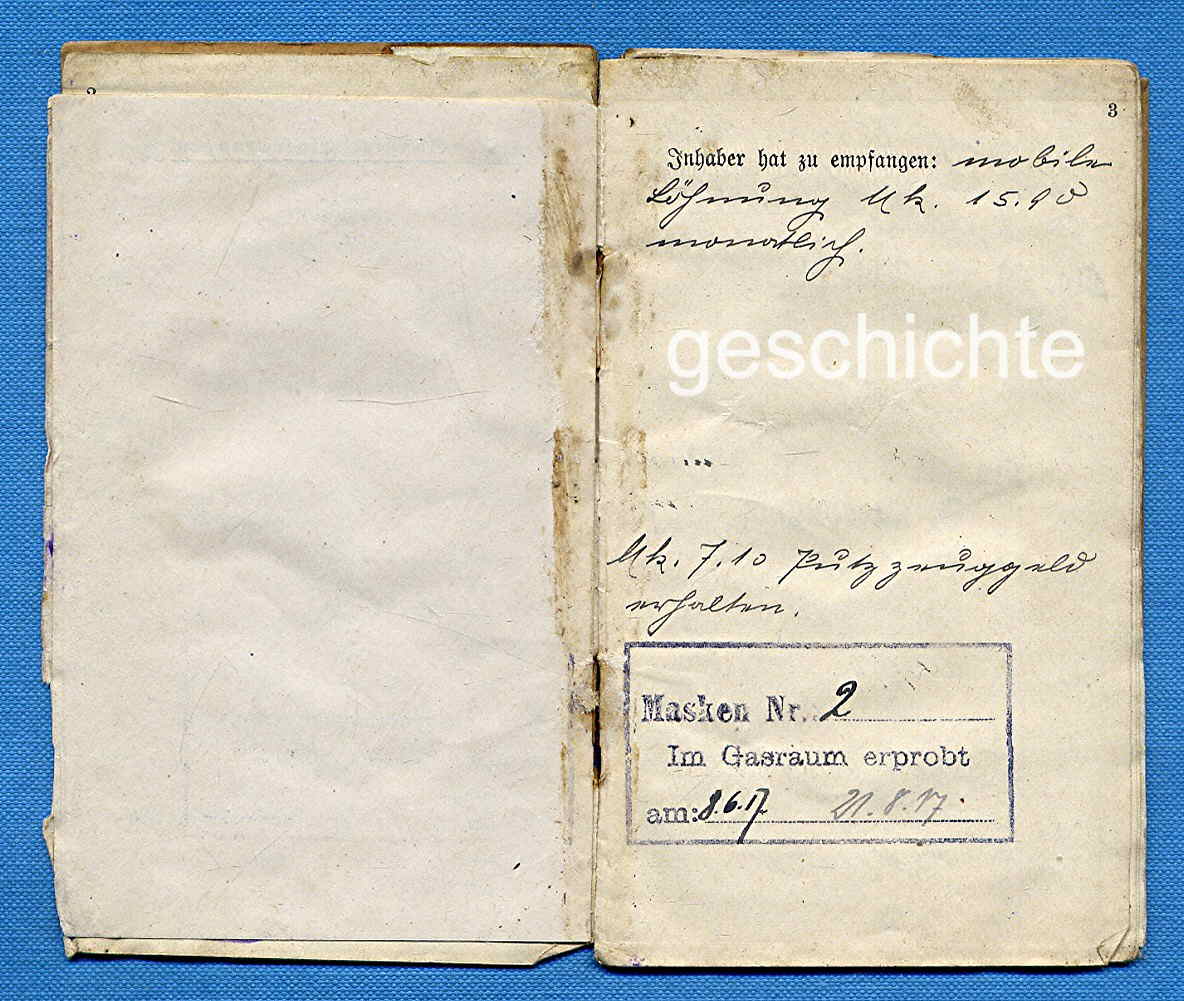 2
3
Inhaber hat zu empfangen: mobile
Löhnung Mk. 15.90
monatlich.
geschichte
Mk. 7.10 Putzzeuggeld
erhalten.
Masken Nr. 2
Im Gasraum erprobt
am: 8.6.17. 21.8.17.